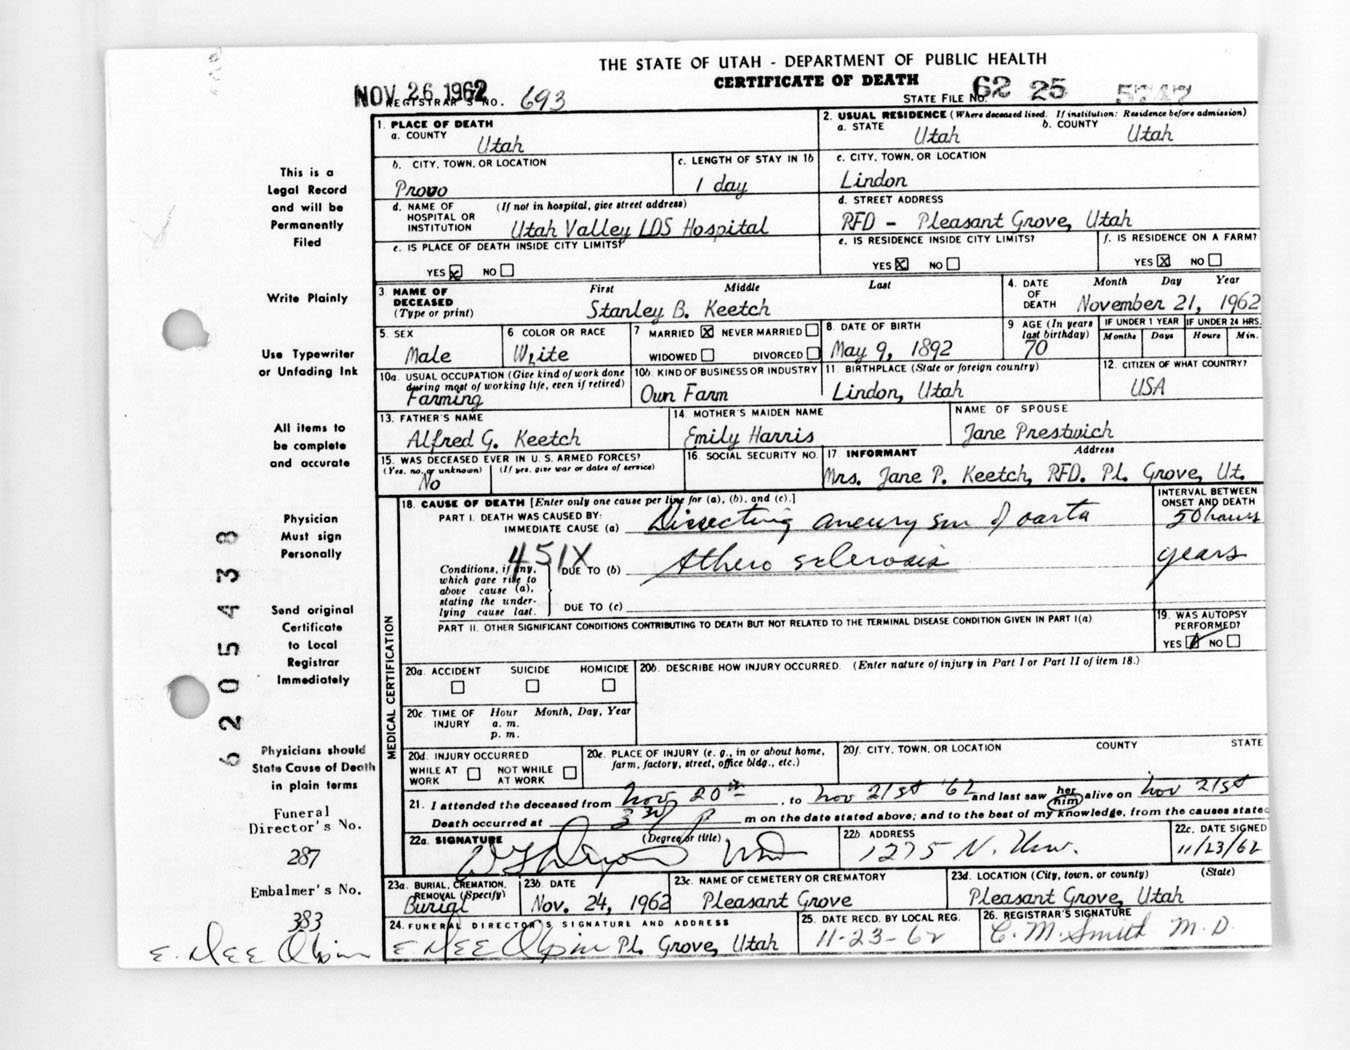 THE STATE OF UTAH - DEPARTMENT OF PUBLIC HEALTH
CERTIFICATE OF DEATH
NOV 26 1962
REGISTRAR'S NO. 693
STATE FILE NO. 62 25
This is a
Legal Record
and will be
Permanently
Filed
Write Plainly
Use Typewriter
or Unfading Ink
All items to
be complete
and accurate
Physician
Must sign
Personally
Send original
Certificate
to Local
Registrar
Immediately
Physicians should
State Cause of Death
in plain terms
Funeral
Director's No.
287
Embalmer's No.
383
E. DEE Olpin
6205438
1. PLACE OF DEATH
a. COUNTY
Utah
2. USUAL RESIDENCE (Where deceased lived. If institution: Residence before admission)
a. STATE Utah b. COUNTY Utah
b. CITY, TOWN, OR LOCATION
Provo
c. LENGTH OF STAY IN 1b
1 day
c. CITY, TOWN, OR LOCATION
Lindon
d. NAME OF HOSPITAL OR INSTITUTION (If not in hospital, give street address)
Utah Valley LDS Hospital
d. STREET ADDRESS
RFD - Pleasant Grove, Utah
e. IS PLACE OF DEATH INSIDE CITY LIMITS?
YES NO
e. IS RESIDENCE INSIDE CITY LIMITS?
YES NO
f. IS RESIDENCE ON A FARM?
YES NO
3 NAME OF DECEASED (Type or print)
First Middle Last
Stanley B. Keetch
4. DATE OF DEATH Month Day Year
November 21, 1962
5. SEX
Male
6 COLOR OR RACE
White
7 MARRIED NEVER MARRIED
WIDOWED DIVORCED
8 DATE OF BIRTH
May 9, 1892
9 AGE (In years last birthday)
70
IF UNDER 1 YEAR IF UNDER 24 HRS.
Months Days Hours Min.
10a. USUAL OCCUPATION (Give kind of work done during most of working life, even if retired)
Farming
10b. KIND OF BUSINESS OR INDUSTRY
Own Farm
11. BIRTHPLACE (State or foreign country)
Lindon, Utah
12. CITIZEN OF WHAT COUNTRY?
USA
13. FATHER'S NAME
Alfred G. Keetch
14. MOTHER'S MAIDEN NAME
Emily Harris
NAME OF SPOUSE
Jane Prestwich
15. WAS DECEASED EVER IN U.S. ARMED FORCES?
(Yes, no, or unknown) (If yes, give war or dates of service)
No
16. SOCIAL SECURITY NO.
17 INFORMANT Address
Mrs. Jane P. Keetch, RFD. Pl. Grove, Ut.
MEDICAL CERTIFICATION
18. CAUSE OF DEATH [Enter only one cause per line for (a), (b), and (c).]
INTERVAL BETWEEN ONSET AND DEATH
PART I. DEATH WAS CAUSED BY:
IMMEDIATE CAUSE (a) Dissecting aneurysm of oarta 50 hours
451X
Conditions, if any, which gave rise to above cause (a), stating the underlying cause last.
DUE TO (b) Athero sclerosis years
DUE TO (c)
PART II. OTHER SIGNIFICANT CONDITIONS CONTRIBUTING TO DEATH BUT NOT RELATED TO THE TERMINAL DISEASE CONDITION GIVEN IN PART I(a)
19. WAS AUTOPSY PERFORMED?
YES NO
20a. ACCIDENT SUICIDE HOMICIDE
20b. DESCRIBE HOW INJURY OCCURRED. (Enter nature of injury in Part I or Part II of item 18.)
20c. TIME OF INJURY Hour Month, Day, Year
a. m.
p. m.
20d. INJURY OCCURRED
WHILE AT WORK NOT WHILE AT WORK
20e. PLACE OF INJURY (e. g., in or about home, farm, factory, street, office bldg., etc.)
20f. CITY, TOWN, OR LOCATION COUNTY STATE
21. I attended the deceased from Nov 20th, to Nov 21st '62 and last saw her him alive on Nov 21st
Death occurred at 3 P m on the date stated above; and to the best of my knowledge, from the causes stated
22a. SIGNATURE (Degree or title)
MD
22b. ADDRESS
1275 N. Univ.
22c. DATE SIGNED
11/23/62
23a. BURIAL, CREMATION, REMOVAL (Specify)
Burial
23b. DATE
Nov. 24, 1962
23c. NAME OF CEMETERY OR CREMATORY
Pleasant Grove
23d. LOCATION (City, town, or county) (State)
Pleasant Grove, Utah
24. FUNERAL DIRECTOR'S SIGNATURE AND ADDRESS
E DEE Olpin Pl. Grove, Utah
25. DATE RECD. BY LOCAL REG.
11-23-62
26. REGISTRAR'S SIGNATURE
C. M. Smith M. D.